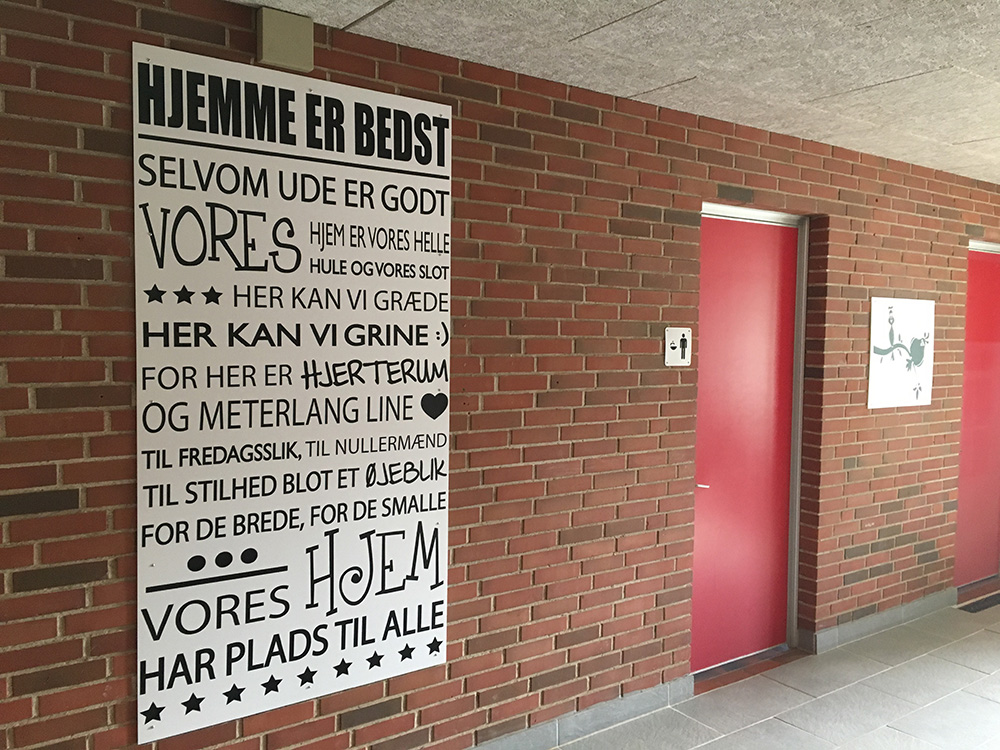 HJEMME ER BEDST
SELVOM UDE ER GODT
VORES HJEM ER VORES HELLE
HULE OG VORES SLOT
HER KAN VI GRÆDE
HER KAN VI GRINE :)
FOR HER ER HJERTERUM
OG METERLANG LINE
TIL FREDAGSSLIK, TIL NULLERMÆND
TIL STILHED BLOT ET ØJEBLIK
FOR DE BREDE, FOR DE SMALLE
VORES HJEM
HAR PLADS TIL ALLE